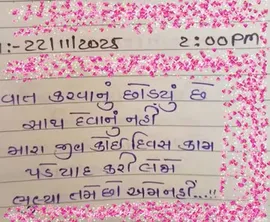 :-22/11/2025 2:00PM
વાત કરવાનું છોડયું છે
સાથ દેવાનું નહીં
મારા જીવ કોઈ દિવસ કામ
પડે યાદ કરી લેજે
ભુલ્યા તમ છો અમ નહીં...!!